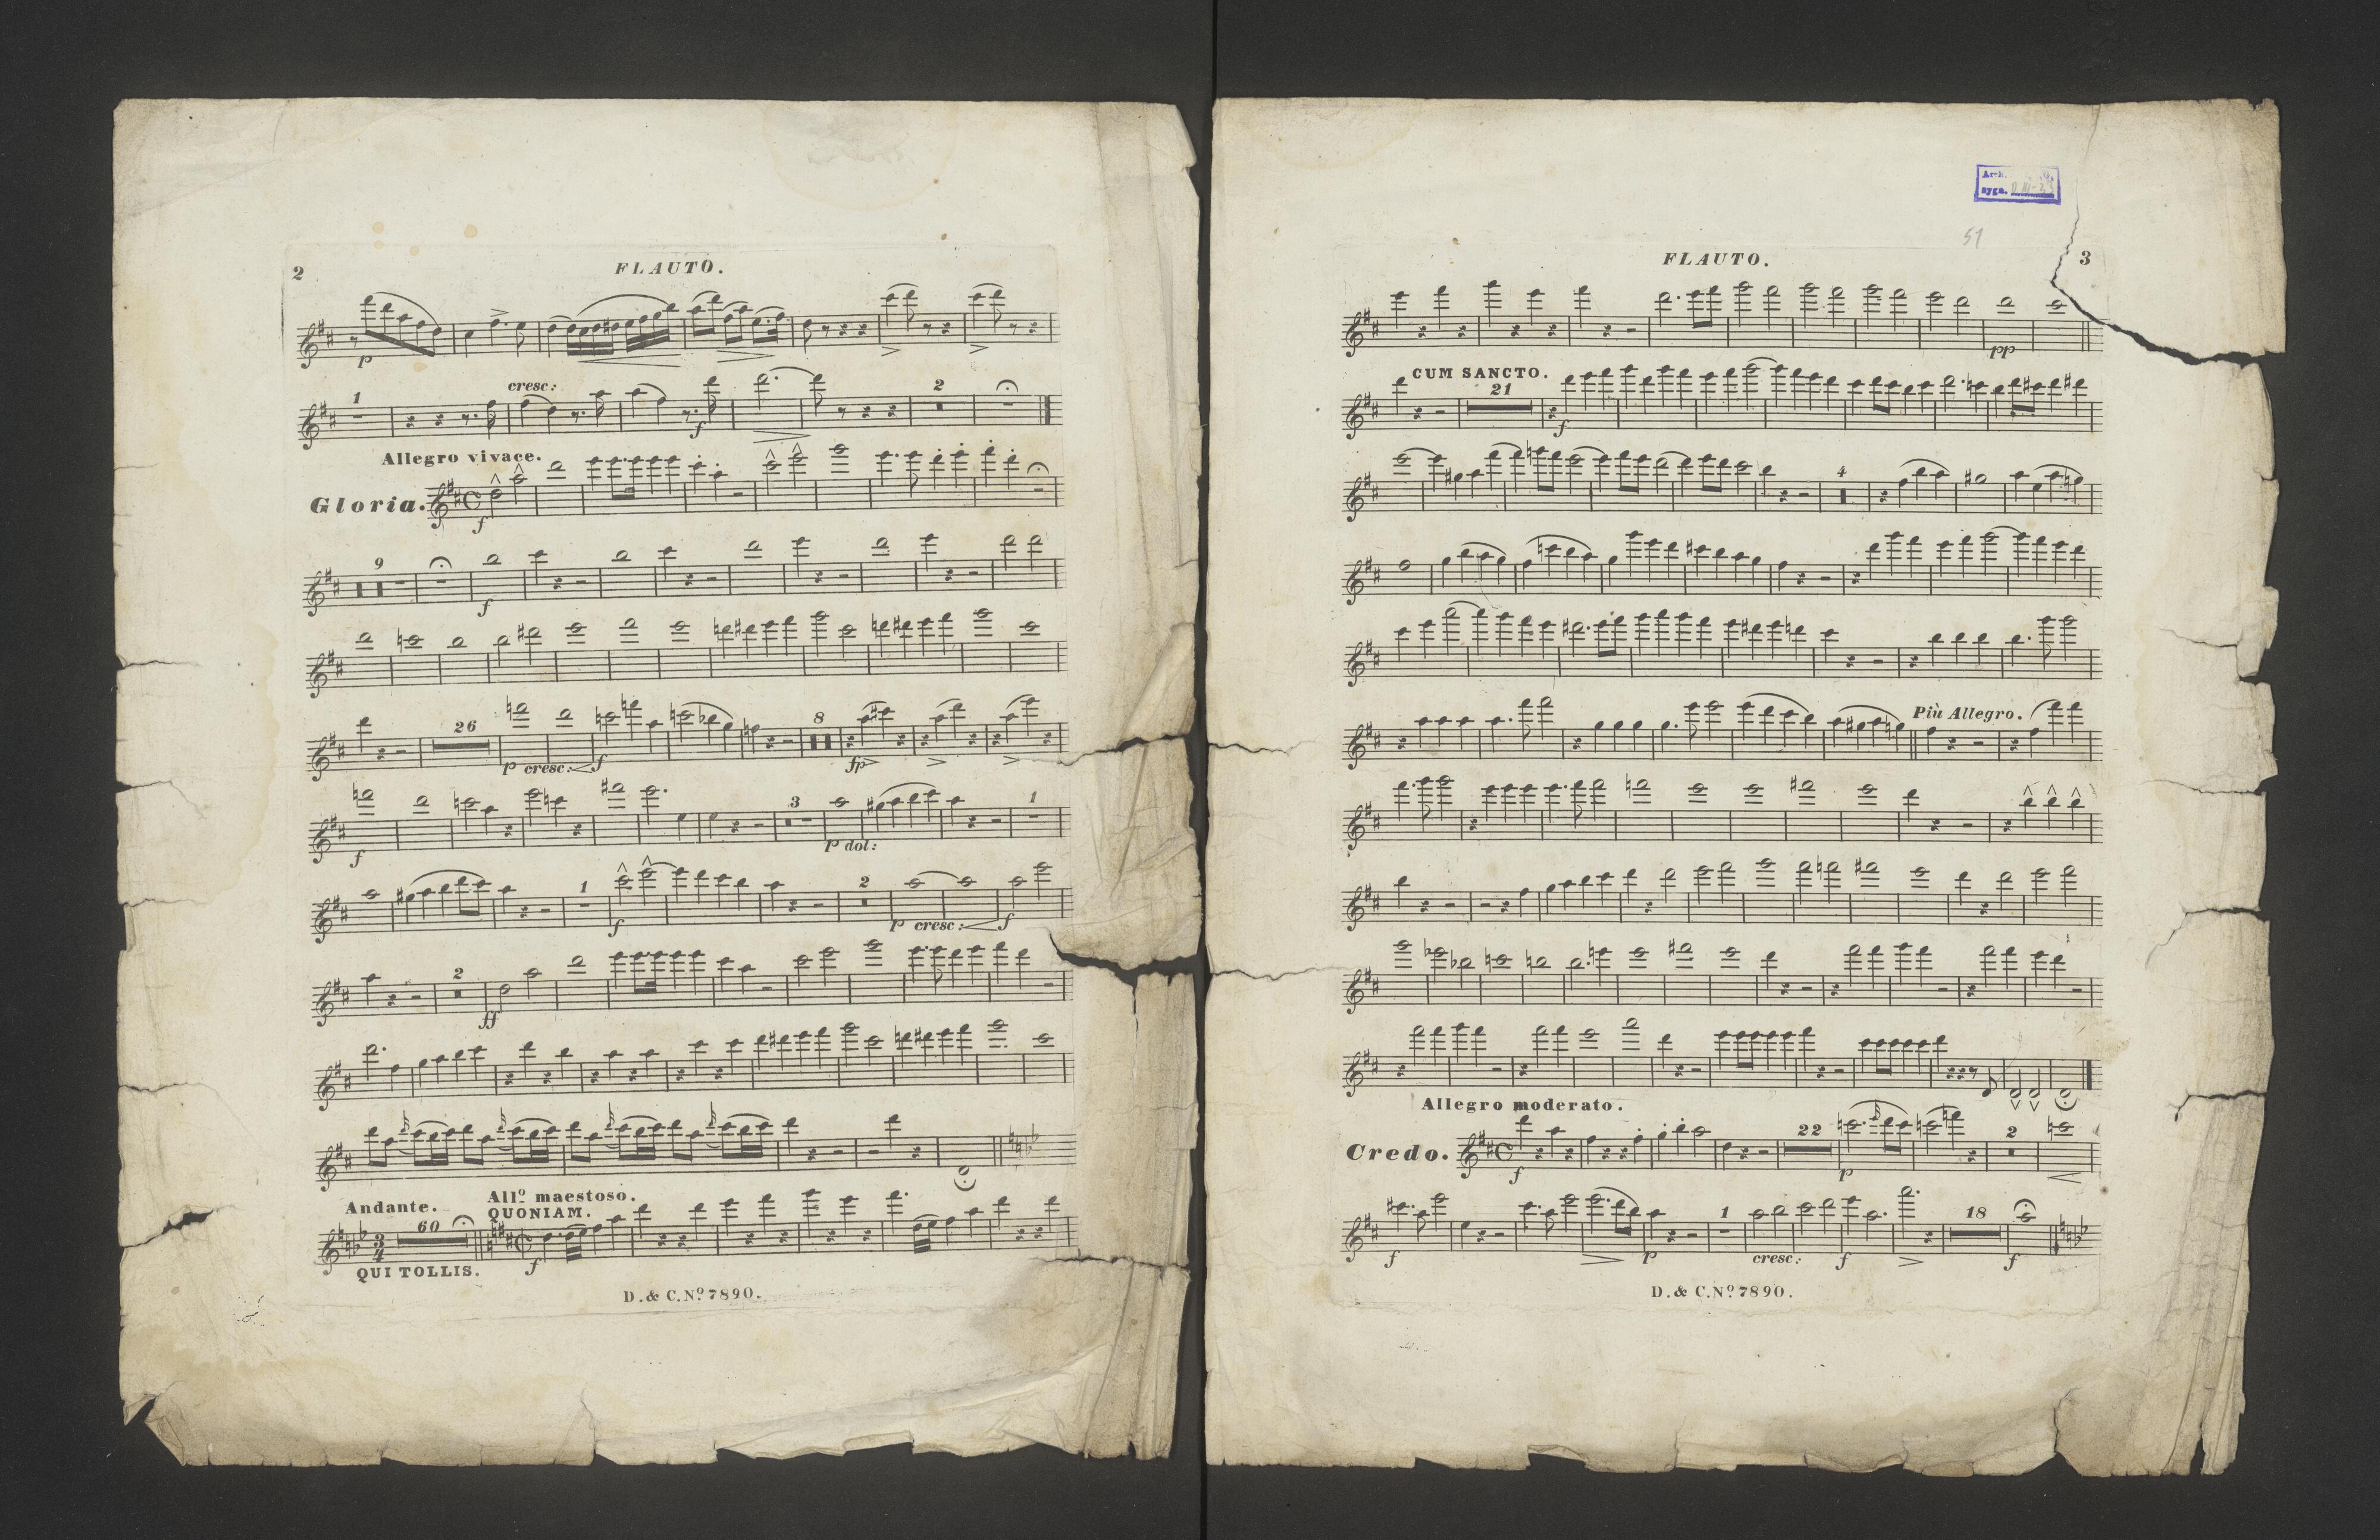 2
FLAUTO.
p
1
cresc:
f
2
Allegro vivace.
Gloria.
f
9
f
26
p cresc:
f
8
fp
f
3
p dol:
1
1
f
2
p cresc:
f
2
ff
Andante.
60
All⁰ maestoso.
QUONIAM.
3
4
f
QUI TOLLIS.
D. & C. Nº 7890.
Arch.
sygn.
51
FLAUTO.
3
pp
CUM SANCTO.
21
f
4
Più Allegro.
Allegro moderato.
Credo.
f
22
p
2
f
p
1
cresc:
f
18
f
D. & C. Nº 7890.